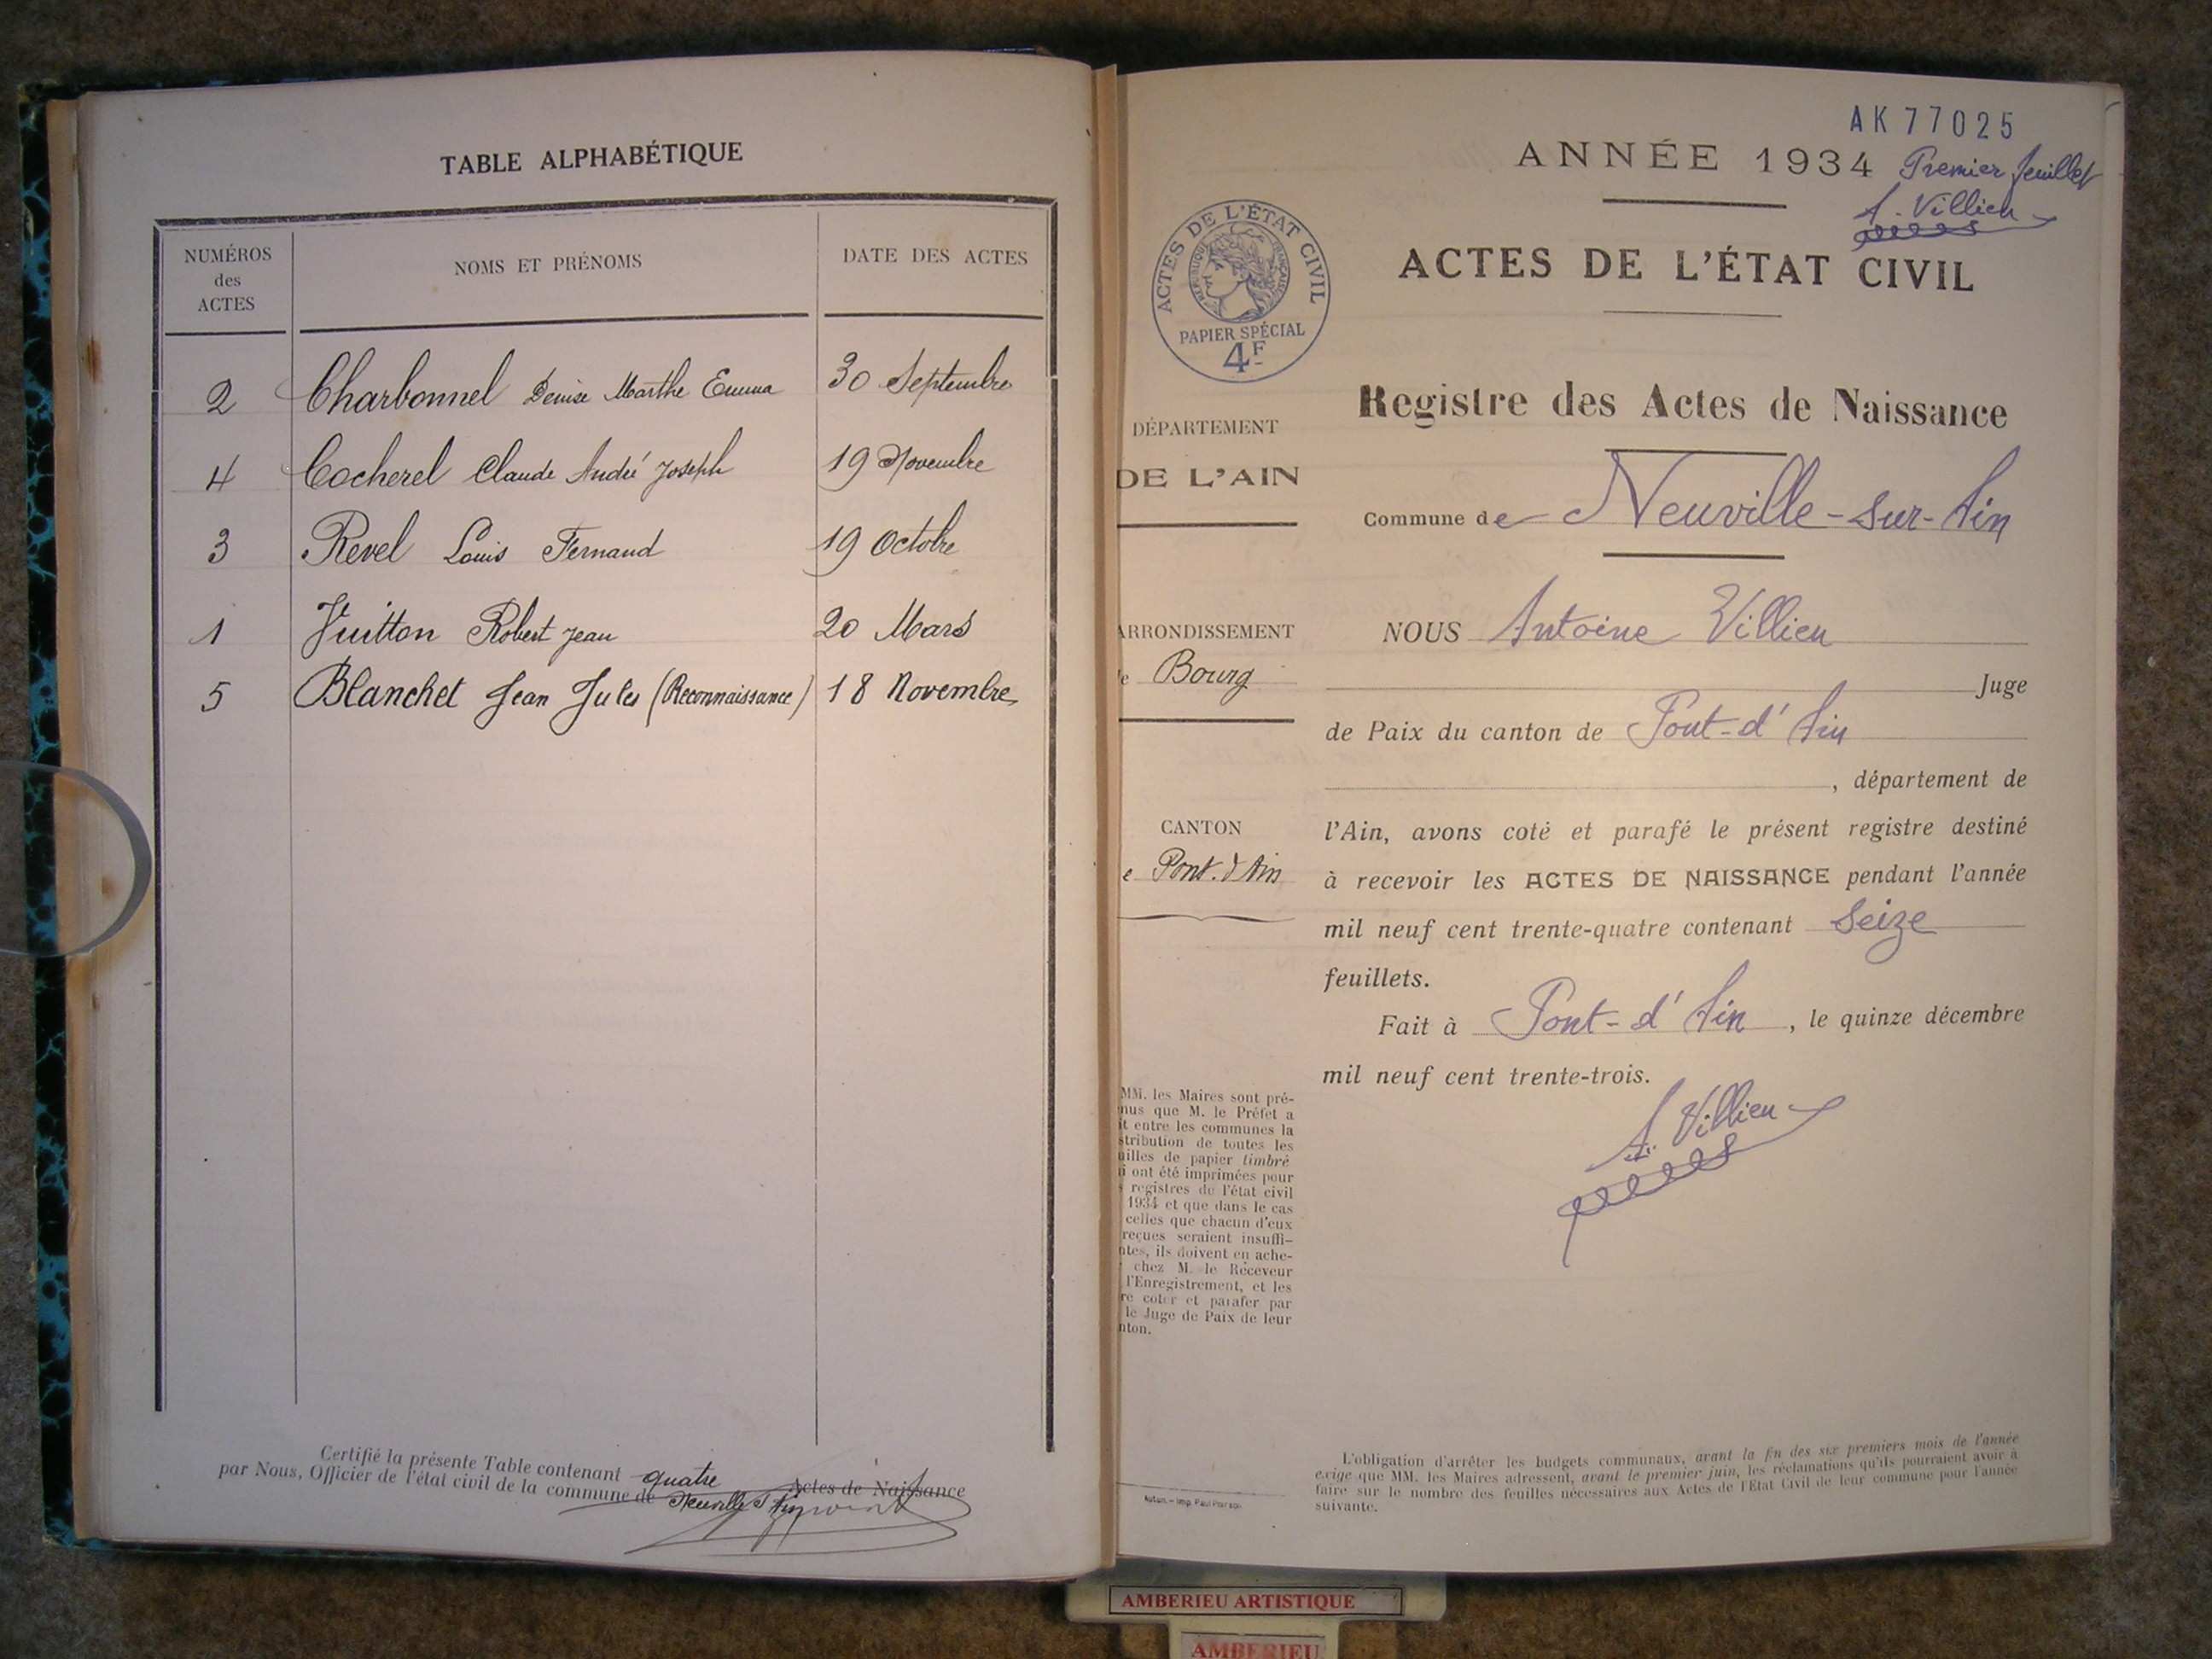 TABLE ALPHABÉTIQUE
NUMÉROS
des
ACTES
NOMS ET PRÉNOMS
DATE DES ACTES
2 Charbonnel Denise Marthe Emma 30 Septembre
4 Cocherel Claude André Joseph 19 Novembre
3 Revel Louis Fernand 19 Octobre
1 Vuitton Robert Jean 20 Mars
5 Blanchet Jean Jules (Reconnaissance) 18 Novembre
Certifié la présente Table contenant quatre Actes de Naissance
par Nous, Officier de l'état civil de la commune de Neuville s/ Ain
AK 77025
ANNÉE 1934 Premier feuillet
A. Villien
ACTES DE L'ÉTAT CIVIL
RÉPUBLIQUE FRANÇAISE
PAPIER SPÉCIAL
4F
ACTES DE L'ÉTAT CIVIL
Registre des Actes de Naissance
DÉPARTEMENT
DE L'AIN
Commune de Neuville-sur-Ain
ARRONDISSEMENT
e Bourg
CANTON
e Pont-d'Ain
NOUS Antoine Villien
Juge
de Paix du canton de Pont-d'Ain
, département de
l'Ain, avons coté et parafé le présent registre destiné
à recevoir les ACTES DE NAISSANCE pendant l'année
mil neuf cent trente-quatre contenant seize
feuillets.
Fait à Pont-d'Ain, le quinze décembre
mil neuf cent trente-trois.
A. Villien
MM. les Maires sont pré-
nus que M. le Préfet a
it entre les communes la
stribution de toutes les
uilles de papier timbré
i ont été imprimées pour
s registres de l'état civil
1934 et que dans le cas
celles que chacun d'eux
reçues seraient insuffi-
ntes, ils doivent en ache-
chez M. le Receveur
l'Enregistrement, et les
re coter et parafer par
le Juge de Paix de leur
nton.
L'obligation d'arrêter les budgets communaux, avant la fin des six premiers mois de l'année
exige que MM. les Maires adressent, avant le premier juin, les réclamations qu'ils pourraient avoir à
faire sur le nombre des feuilles nécessaires aux Actes de l'État Civil de leur commune pour l'année
suivante.
AMBERIEU ARTISTIQUE
AMBERIEU